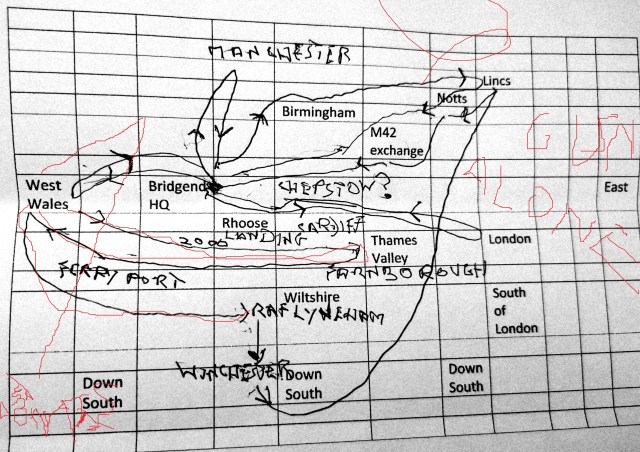 MANCHESTER
Lincs
Notts
Birmingham
M42
exchange
GUN
ALONE
West
Wales
Bridgend
HQ
CHEPSTOW?
East
Rhoose
LANDING
CARDIFF
2000
Thames
Valley
London
FERRY PORT
FARNBOROUGH
Wiltshire
RAF LYNENAM
South
of
London
WINCHESTER
Down
South
Down
South
Down
South